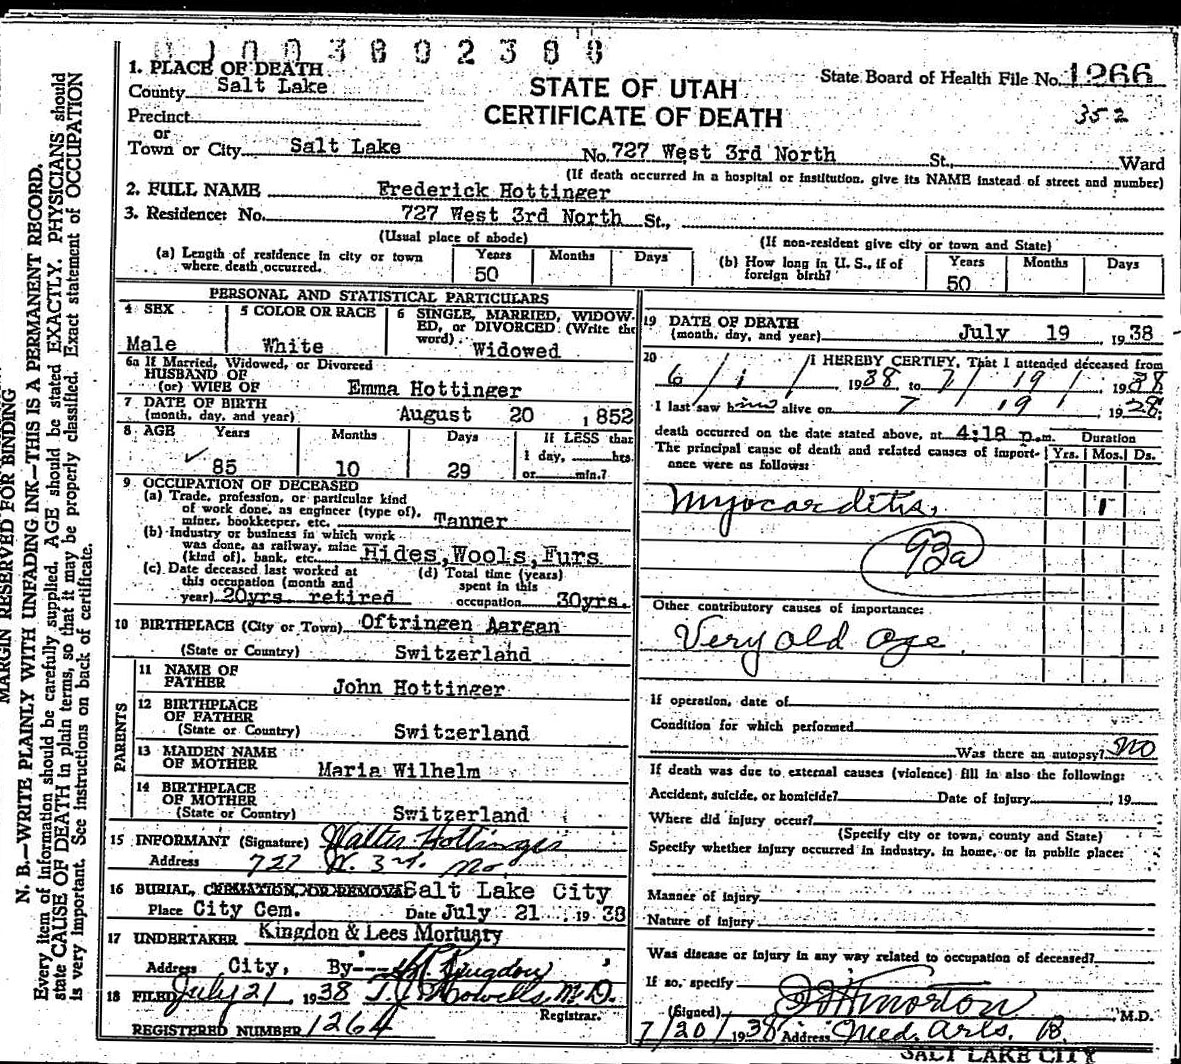 01003892388
1. PLACE OF DEATH
County Salt Lake
Precinct
or
Town or City Salt Lake
STATE OF UTAH
CERTIFICATE OF DEATH
State Board of Health File No. 1266
352
No. 727 West 3rd North St., Ward
(If death occurred in a hospital or institution, give its NAME instead of street and number)
2. FULL NAME Frederick Hottinger
3. Residence: No. 727 West 3rd North St.,
(Usual place of abode)
(If non-resident give city or town and State)
(a) Length of residence in city or town
where death occurred.
Years Months Days
50
(b) How long in U. S., if of
foreign birth?
Years Months Days
50
PERSONAL AND STATISTICAL PARTICULARS
4 SEX
Male
5 COLOR OR RACE
White
6 SINGLE, MARRIED, WIDOW-
ED, or DIVORCED. (Write the
word)
Widowed
6a If Married, Widowed, or Divorced
HUSBAND OF
(or) WIFE OF Emma Hottinger
7 DATE OF BIRTH
(month, day, and year) August 20 , 1852
8 AGE Years Months Days If LESS than
1 day, hrs.
85 10 29 or min.?
9 OCCUPATION OF DECEASED
(a) Trade, profession, or particular kind
of work done, as engineer (type of),
miner, bookkeeper, etc. Tanner
(b) Industry or business in which work
was done, as railway, mine
(kind of), bank, etc. Hides, Wools, Furs
(c) Date deceased last worked at
this occupation (month and
year) 20yrs. retired
(d) Total time (years)
spent in this
occupation 30yrs.
10 BIRTHPLACE (City or Town) Oftringen Aargan
(State or Country) Switzerland
PARENTS
11 NAME OF
FATHER John Hottinger
12 BIRTHPLACE
OF FATHER
(State or Country) Switzerland
13 MAIDEN NAME
OF MOTHER Maria Wilhelm
14 BIRTHPLACE
OF MOTHER
(State or Country) Switzerland
15 INFORMANT (Signature) Walter Hottinger
Address 727 W. 3rd. No.
16 BURIAL, CREMATION, OR REMOVAL Salt Lake City
Place City Cem. Date July 21 , 1938
17 UNDERTAKER Kingdon & Lees Mortuary
Address City, By Kingdon
18 FILED July 21 1938 T. J. Howells, M.D.
Registrar.
REGISTERED NUMBER 1264
19 DATE OF DEATH
(month, day, and year) July 19 , 1938
20 I HEREBY CERTIFY, That I attended deceased from
6 / 1 / , 1938 to 7 / 19 / , 1938
I last saw him alive on 7 / 19 / , 1938
death occurred on the date stated above, at 4:18 p.m.
Duration
The principal cause of death and related causes of import-
ance were as follows:
Yrs. Mos. Ds.
Myocarditis, 1
93a
Other contributory causes of importance:
Very old age.
If operation, date of
Condition for which performed
Was there an autopsy? No
If death was due to external causes (violence) fill in also the following:
Accident, suicide, or homicide? Date of injury , 19
Where did injury occur?
(Specify city or town, county and State)
Specify whether injury occurred in industry, in home, or in public place:
Manner of injury
Nature of injury
Was disease or injury in any way related to occupation of deceased?
If so, specify
(Signed) Morton M.D.
7/20/1938 Address Med. Arts. B.
SALT LAKE CITY
MARGIN RESERVED FOR BINDING
N. B.—WRITE PLAINLY WITH UNFADING INK—THIS IS A PERMANENT RECORD.
Every item of information should be carefully supplied. AGE should be stated EXACTLY. PHYSICIANS should
state CAUSE OF DEATH in plain terms, so that it may be properly classified. Exact statement of OCCUPATION
is very important. See instructions on back of certificate.